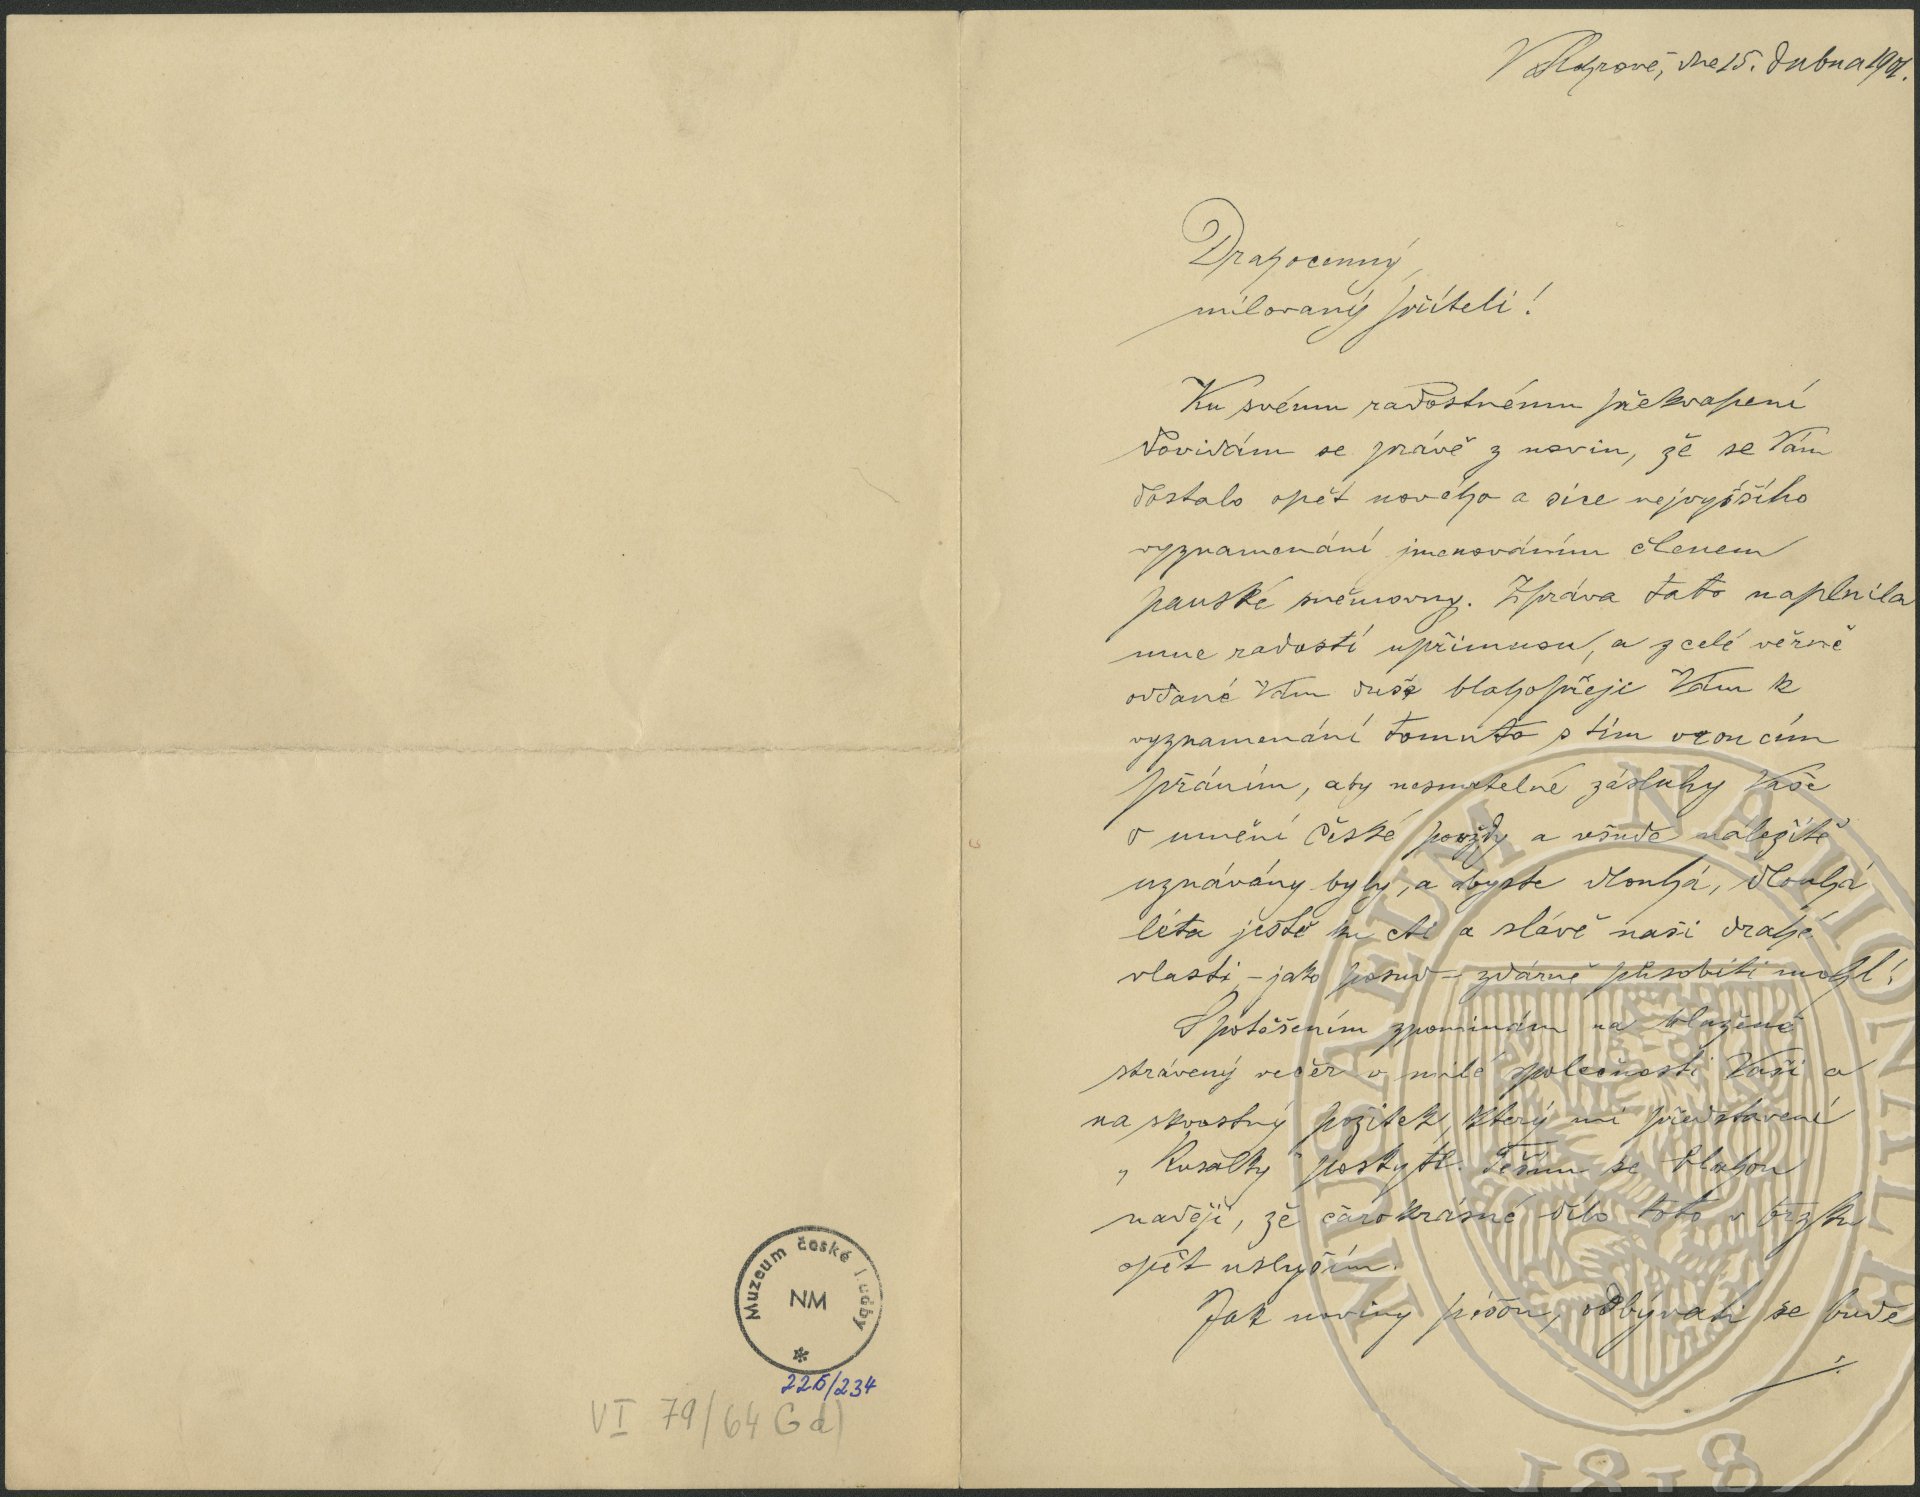 Muzeum české hudby
NM
225/234
VI 79/64 Gd)
dne 15. dubna 1901.
Drahocenný,
milovaný příteli!
Ku svému radostnému překvapení
dovídám se právě z novin, že se Vám
dostalo opět nového a sice nejvyššího
vyznamenání jmenováním členem
panské sněmovny. Zpráva tato naplnila
mne radostí upřímnou, a z celé věrně
oddané Vám duše blahopřeji Vám k
vyznamenání tomuto s tím vroucím
přáním, aby nesmrtelné zásluhy Vaše
o umění české povždy a všude náležitě
uznávány byly, a abyste dlouhá, dlouhá
léta ještě ku cti a slávě naší drahé
vlasti – jako posud – zdárně působiti mohl!
S potěšením zpomínám na blaženě
strávený večer v milé společnosti Vaší a
na skvostný požitek, který mi představení
„Rusalky" poskytl. Těším se blahou
nadějí, že čarokrásné dílo toto v brzku
opět uslyším.
Jak noviny píšou, odbývati se bude
./.
MUSEUM NATIONALE
1818